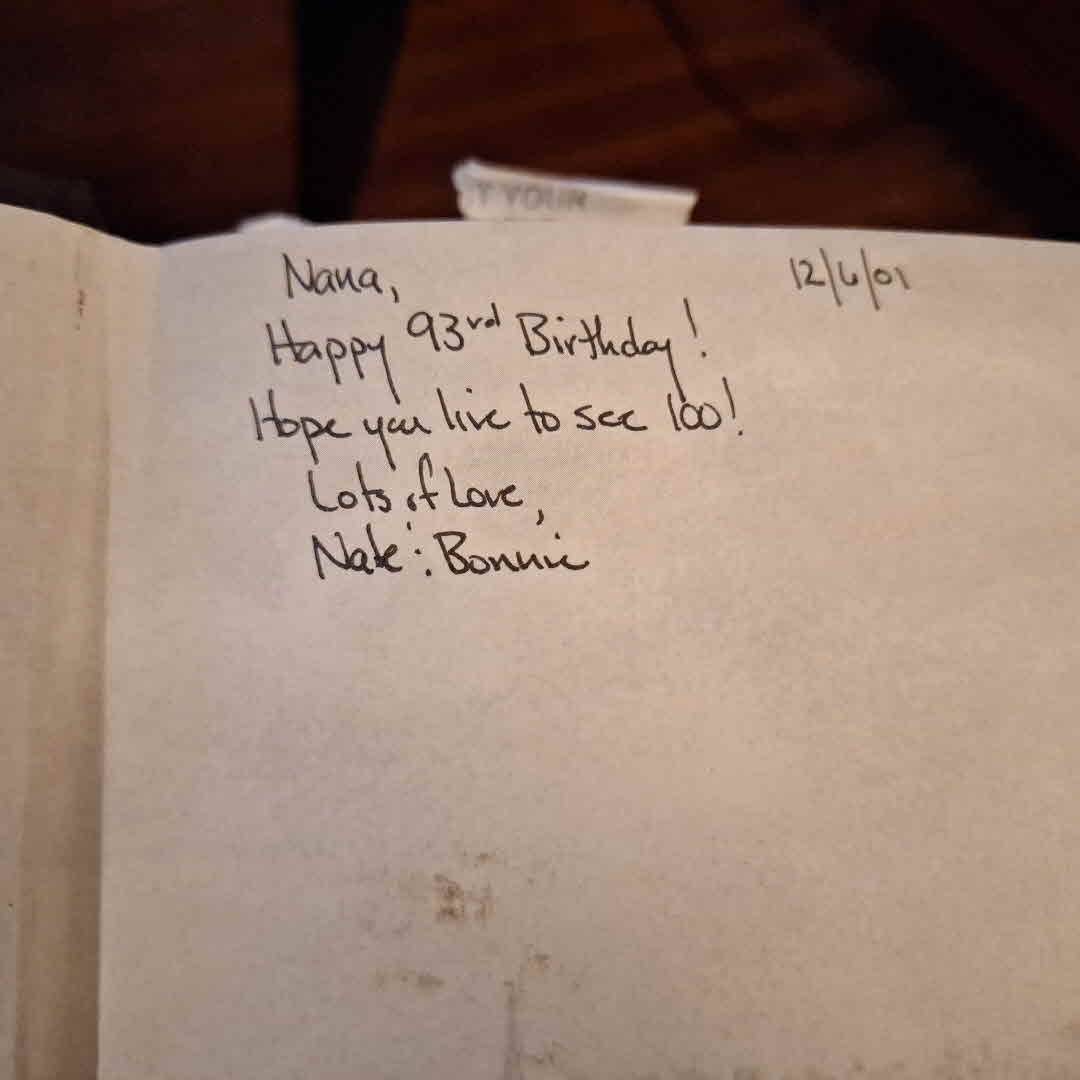 T YOUR
Nana, 12/6/01
Happy 93rd Birthday!
Hope you live to see 100!
Lots of Love,
Nate & Bonnie